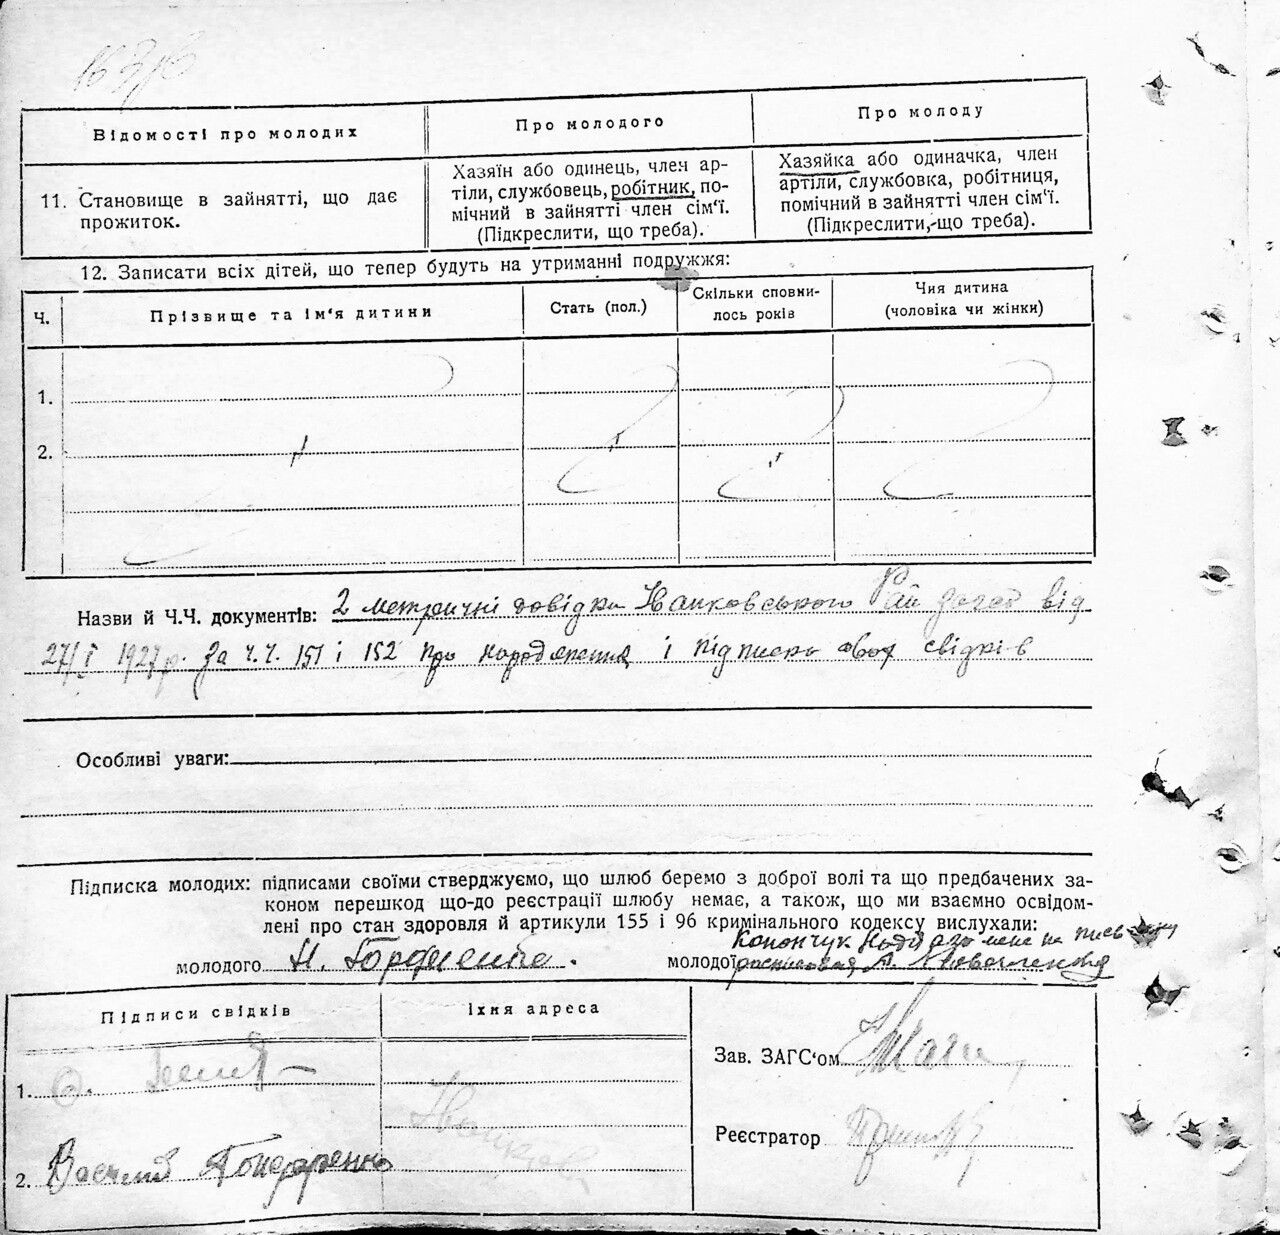 Відомості про молодих
Про молодого
Про молоду
11. Становище в зайнятті, що дає
прожиток.
Хазяїн або одинець, член ар-
тіли, службовець, робітник, по-
мічний в зайнятті член сім'ї.
(Підкреслити, що треба).
Хазяйка або одиначка, член
артіли, службовка, робітниця,
помічний в зайнятті член сім'ї.
(Підкреслити, що треба).
12. Записати всіх дітей, що тепер будуть на утриманні подружжя:
Ч.
Прізвище та ім'я дитини
Стать (пол.)
Скільки сповни-
лось років
Чия дитина
(чоловіка чи жінки)
1.
2.
Назви й Ч.Ч. документів: 2 метричні довідки Рай від
27/I 1927 р. за ч.ч. 151 і 152 про народження і підписка двох свідків
Особливі уваги:
Підписка молодих: підписами своїми стверджуємо, що шлюб беремо з доброї волі та що предбачених за-
коном перешкод що-до реєстрації шлюбу немає, а також, що ми взаємно освідом-
лені про стан здоровля й артикули 155 і 96 кримінального кодексу вислухали:
молодого Н.
молодої
Підписи свідків
Їхня адреса
1.
2. Гондаренко
Зав. ЗАГС'ом
Реєстратор